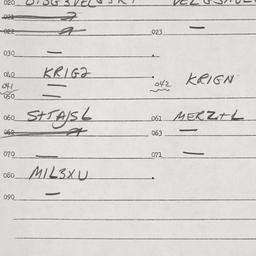 020
021
022 023
030
040 KRIG2 042 KRIGN
041
050
060 S+TAJSL 061 MERZ+L
062 063
070 071
080 MIL3XU
090